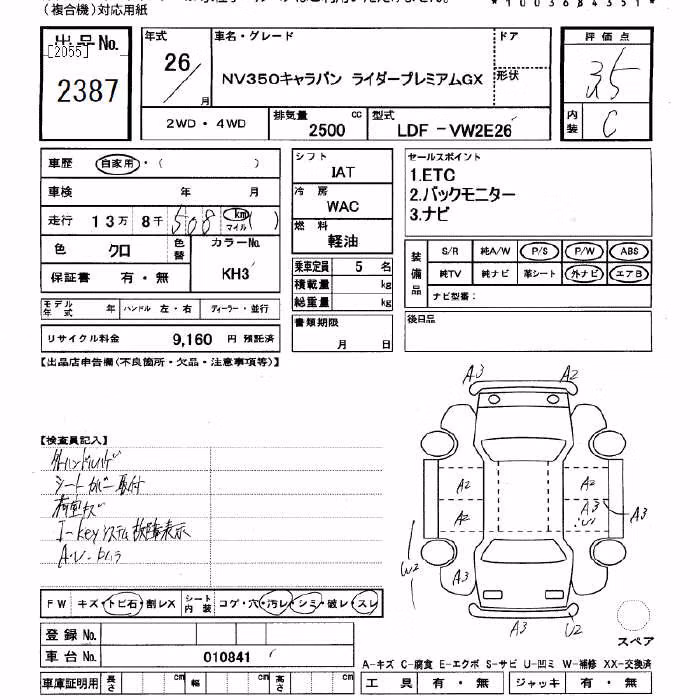 （複合機）対応用紙
*1003684351*
出品No.
[2055]
2387
年式
26
月
車名・グレード
NV350キャラバン ライダープレミアムGX
ドア
形状
2WD・4WD
排気量
2500 cc
型式
LDF-VW2E26
評価点
3.5
内装
C
車歴
自家用・( )
車検 年 月
走行 13万 8千 508 km マイル ( )
色 クロ
色替
カラーNo.
KH3
保証書 有・無
モデル年式 年
ハンドル 左・右
ディーラー・並行
リサイクル料金 9,160 円 預託済
シフト
IAT
冷房
WAC
燃料
軽油
乗車定員 5 名
積載量 kg
総重量 kg
書類期限
月 日
セールスポイント
1.ETC
2.バックモニター
3.ナビ
装備品
S/R 純A/W P/S P/W ABS
純TV 純ナビ 革シート 外ナビ エアB
ナビ型番：
後日品
【出品店申告欄(不良箇所・欠品・注意事項等)】
【検査員記入】
シートカバー取付
I-keyシステム故障表示
FW キズ・トビ石・割レX
シート内装 コゲ・穴・汚レ・シミ・破レ・スレ
登録No.
車台No. 010841
車庫証明用 長さ cm 幅 cm 高さ cm
A3 A2
A2 A2
A2 A3 U
A3
W2
A3
A3 U2
スペア
A-キズ C-腐食 E-エクボ S-サビ U-凹ミ W-補修 XX-交換済
工具 有・無 ジャッキ 有・無